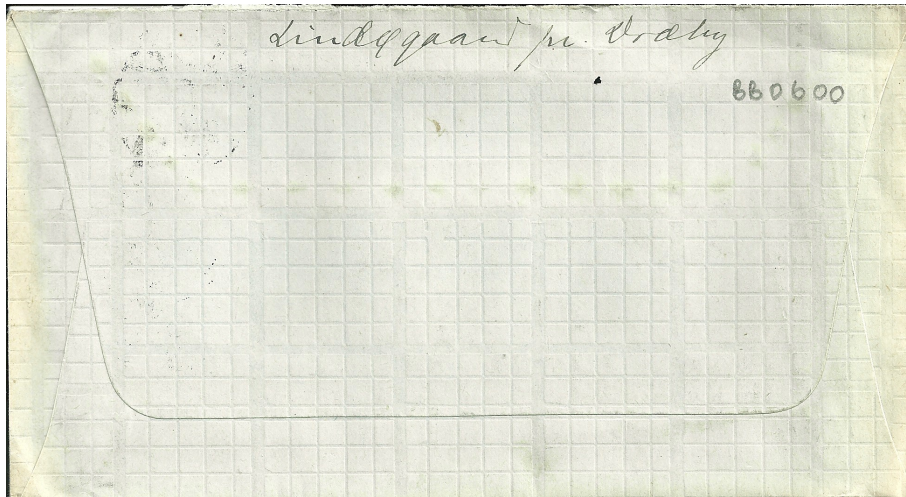 Lindegaard pr. Dræby
BB0600